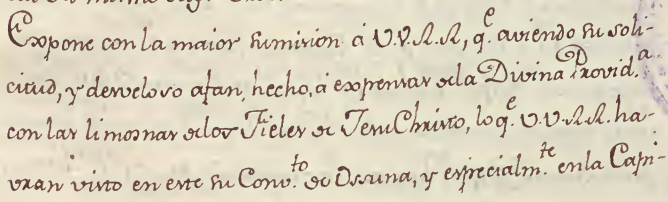 Expone con la maior sumision à V.V.R.R, q.e aviendo su soli-
citud, y desveloso afan, hecho, à expensas de la Divina Provid.a
con las limosnas de los Fieles de Jesu Christo, lo q.e V.V.R.R. ha-
vran visto en este su Conv.to de Ossuna, y especialm.te en la Capi-